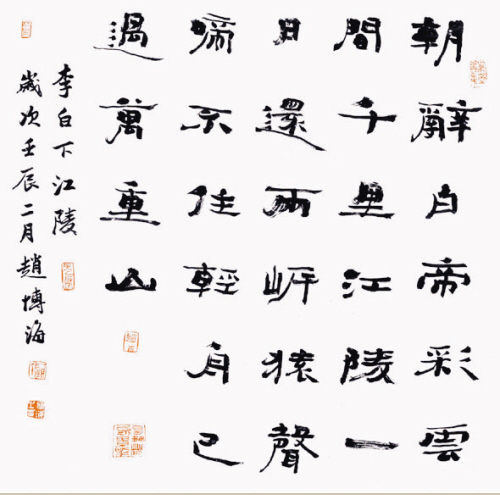 朝辭白帝彩雲
間千里江陵一
日還兩岸猿聲
啼不住輕舟已
過萬重山
李白下江陵
歲次壬辰二月趙博海